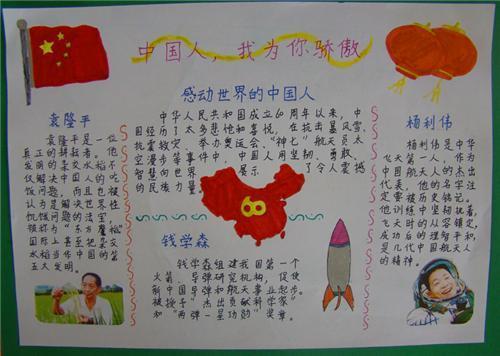 中国人，我为你骄傲
感动世界的中国人
中华人民共和国成立60周年以来，中
国经历了太多悲怆和喜悦，在抗击暴风雪、
抗震救灾、举办奥运会、“神七”航天员太
空漫步等事件中，中国人用坚韧、勇敢、
智慧向世界 展示 了令人震撼
的民族力量。
袁隆平
袁隆平是一位
真正的耕耘者。
仅解决中国人的吃
饭问题，而且也被
认为是解决世界性
饥饿问题的法宝，
国际上甚至把
水稻当作中国的第
五大发明。
60
钱学森
钱学森组建我国第一个
火箭、导弹研究机构，促使
新中国导弹和航天事业起步。
被授予“杰出贡献科学家”
和“两弹一星功勋”奖章。
杨利伟
杨利伟是中华
飞天第一人，作为
中国航天人的杰出
代表，他的名字注
定要被历史铭记。
他训练中坚韧执着，
飞天时的从容镇定，
成功后的理智平和，
是几代中国航天人
的精神。